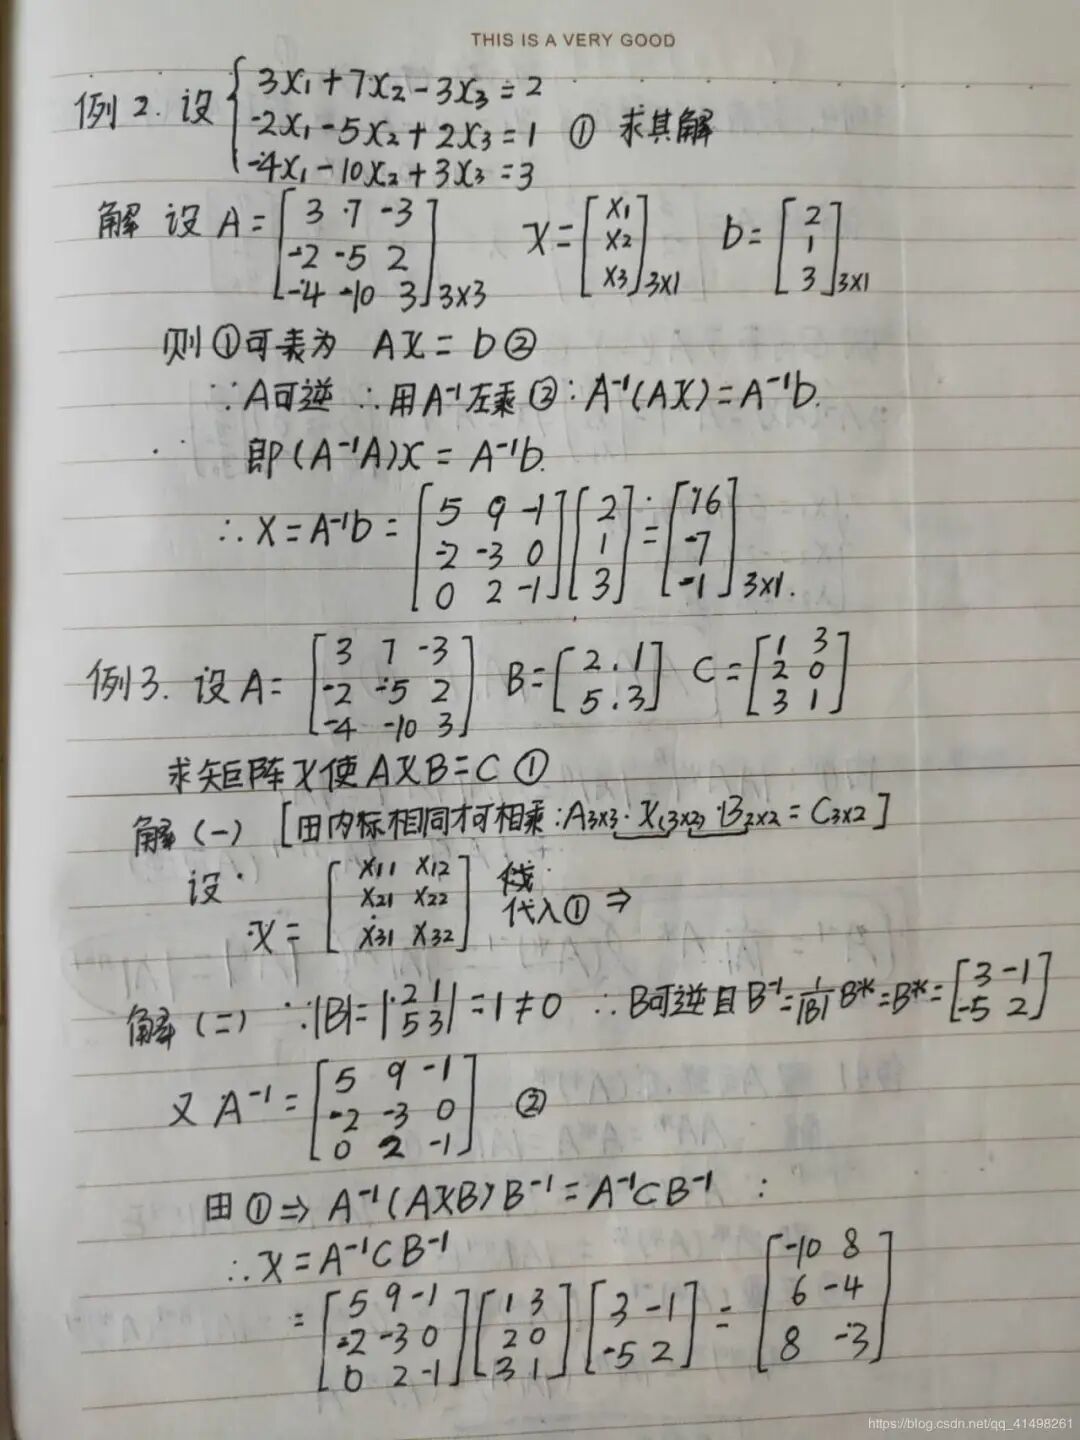 THIS IS A VERY GOOD
例2. 设 { 3x₁+7x₂-3x₃=2
-2x₁-5x₂+2x₃=1 ① 求其解
-4x₁-10x₂+3x₃=3
解 设 A = [3 7 -3; -2 -5 2; -4 -10 3]3×3 X = [x₁; x₂; x₃]3×1 b = [2; 1; 3]3×1
则①可表为 AX = b ②
∵A可逆 ∴用A⁻¹左乘②: A⁻¹(AX) = A⁻¹b.
即(A⁻¹A)X = A⁻¹b.
∴X = A⁻¹b = [5 9 -1; -2 -3 0; 0 2 -1] [2; 1; 3] = [16; -7; -1]3×1.
例3. 设A = [3 7 -3; -2 -5 2; -4 -10 3] B = [2 1; 5 3] C = [1 3; 2 0; 3 1]
求矩阵X使AXB = C ①
解(一) [由内标相同才可相乘: A3×3 · X(3×2) · B2×2 = C3×2]
设 X = [x₁₁ x₁₂; x₂₁ x₂₂; x₃₁ x₃₂] 代入① ⇒
解(二) ∵|B| = |2 1; 5 3| = 1 ≠ 0 ∴B可逆且B⁻¹ = 1/|B| B* = B* = [3 -1; -5 2]
又 A⁻¹ = [5 9 -1; -2 -3 0; 0 2 -1] ②
由①⇒ A⁻¹(AXB)B⁻¹ = A⁻¹CB⁻¹ :
∴X = A⁻¹CB⁻¹
= [5 9 -1; -2 -3 0; 0 2 -1] [1 3; 2 0; 3 1] [3 -1; -5 2] = [-10 8; 6 -4; 8 -3]
https://blog.csdn.net/qq_41498261